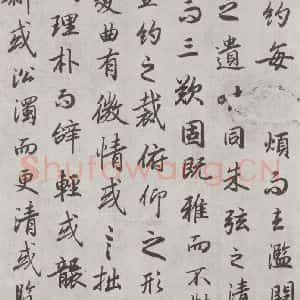 約每煩而去濫闕
之遺味同朱弦之清
而三歎固既雅而不
約之裁俯仰之形
曲有微情或言拙
理朴而辭輕或襲
新或沿濁而更清或覽
Shufawang.CN